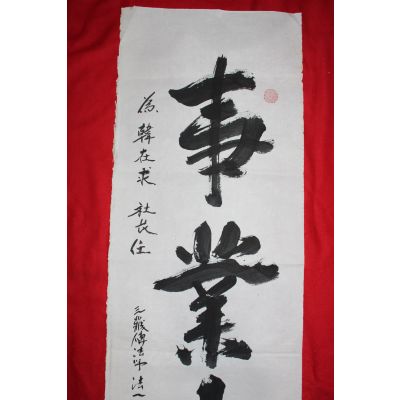 事業
為 韓在求 社長任
三藏傳法師 法